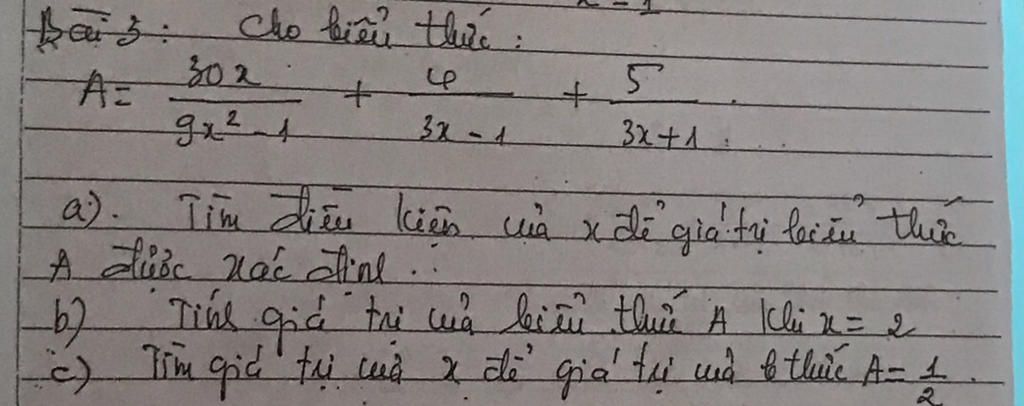 x - 1
Bài 3: Cho biểu thức:
A = 30x/(9x² - 1) + 4/(3x - 1) + 5/(3x + 1).
a). Tìm điều kiện của x để giá trị biểu thức
A được xác định.
b) Tính giá trị của biểu thức A khi x = 2
c) Tìm giá trị của x để giá trị của b thức A = 1/2.